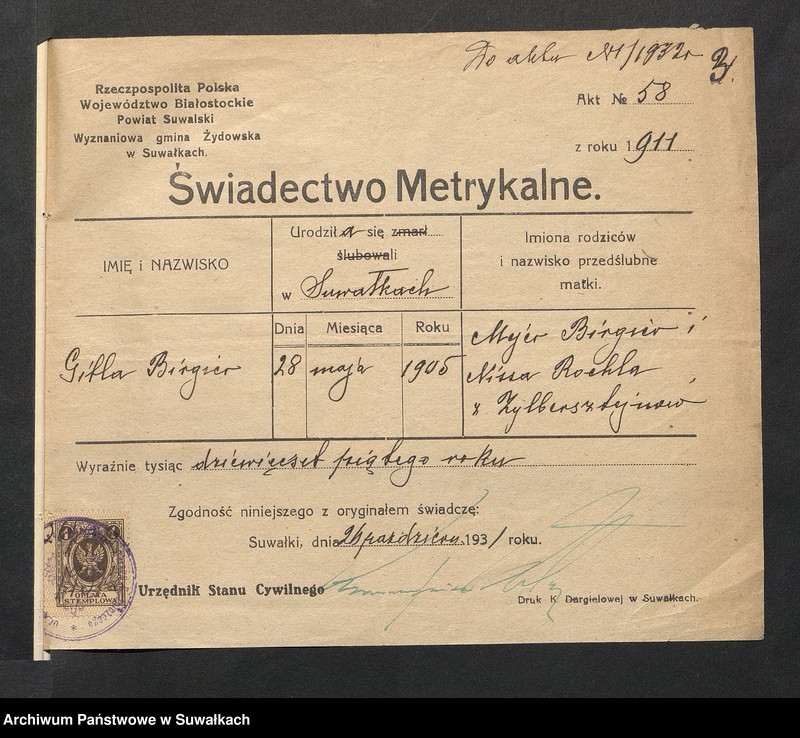 Do aktu N1/1932r
3.
Rzeczpospolita Polska
Województwo Białostockie
Powiat Suwalski
Wyznaniowa gmina Żydowska
w Suwałkach.
Akt № 58
z roku 1911
Świadectwo Metrykalne.
IMIĘ i NAZWISKO
Urodził a się zmarł
ślubowali
w Suwałkach
Imiona rodziców
i nazwisko przedślubne
matki.
Dnia Miesiąca Roku
Gitla Birgier
28 maja 1905
Mejer Birgier i
Nissa Rochla
z Zylbersztejnów
Wyraźnie tysiąc dziewięćset piątego roku
Zgodność niniejszego z oryginałem świadczę:
Suwałki, dnia 26 paździer. 1931 roku.
Urzędnik Stanu Cywilnego
OPŁATA
STEMPLOWA
Druk K. Dargielowej w Suwałkach.
Archiwum Państwowe w Suwałkach